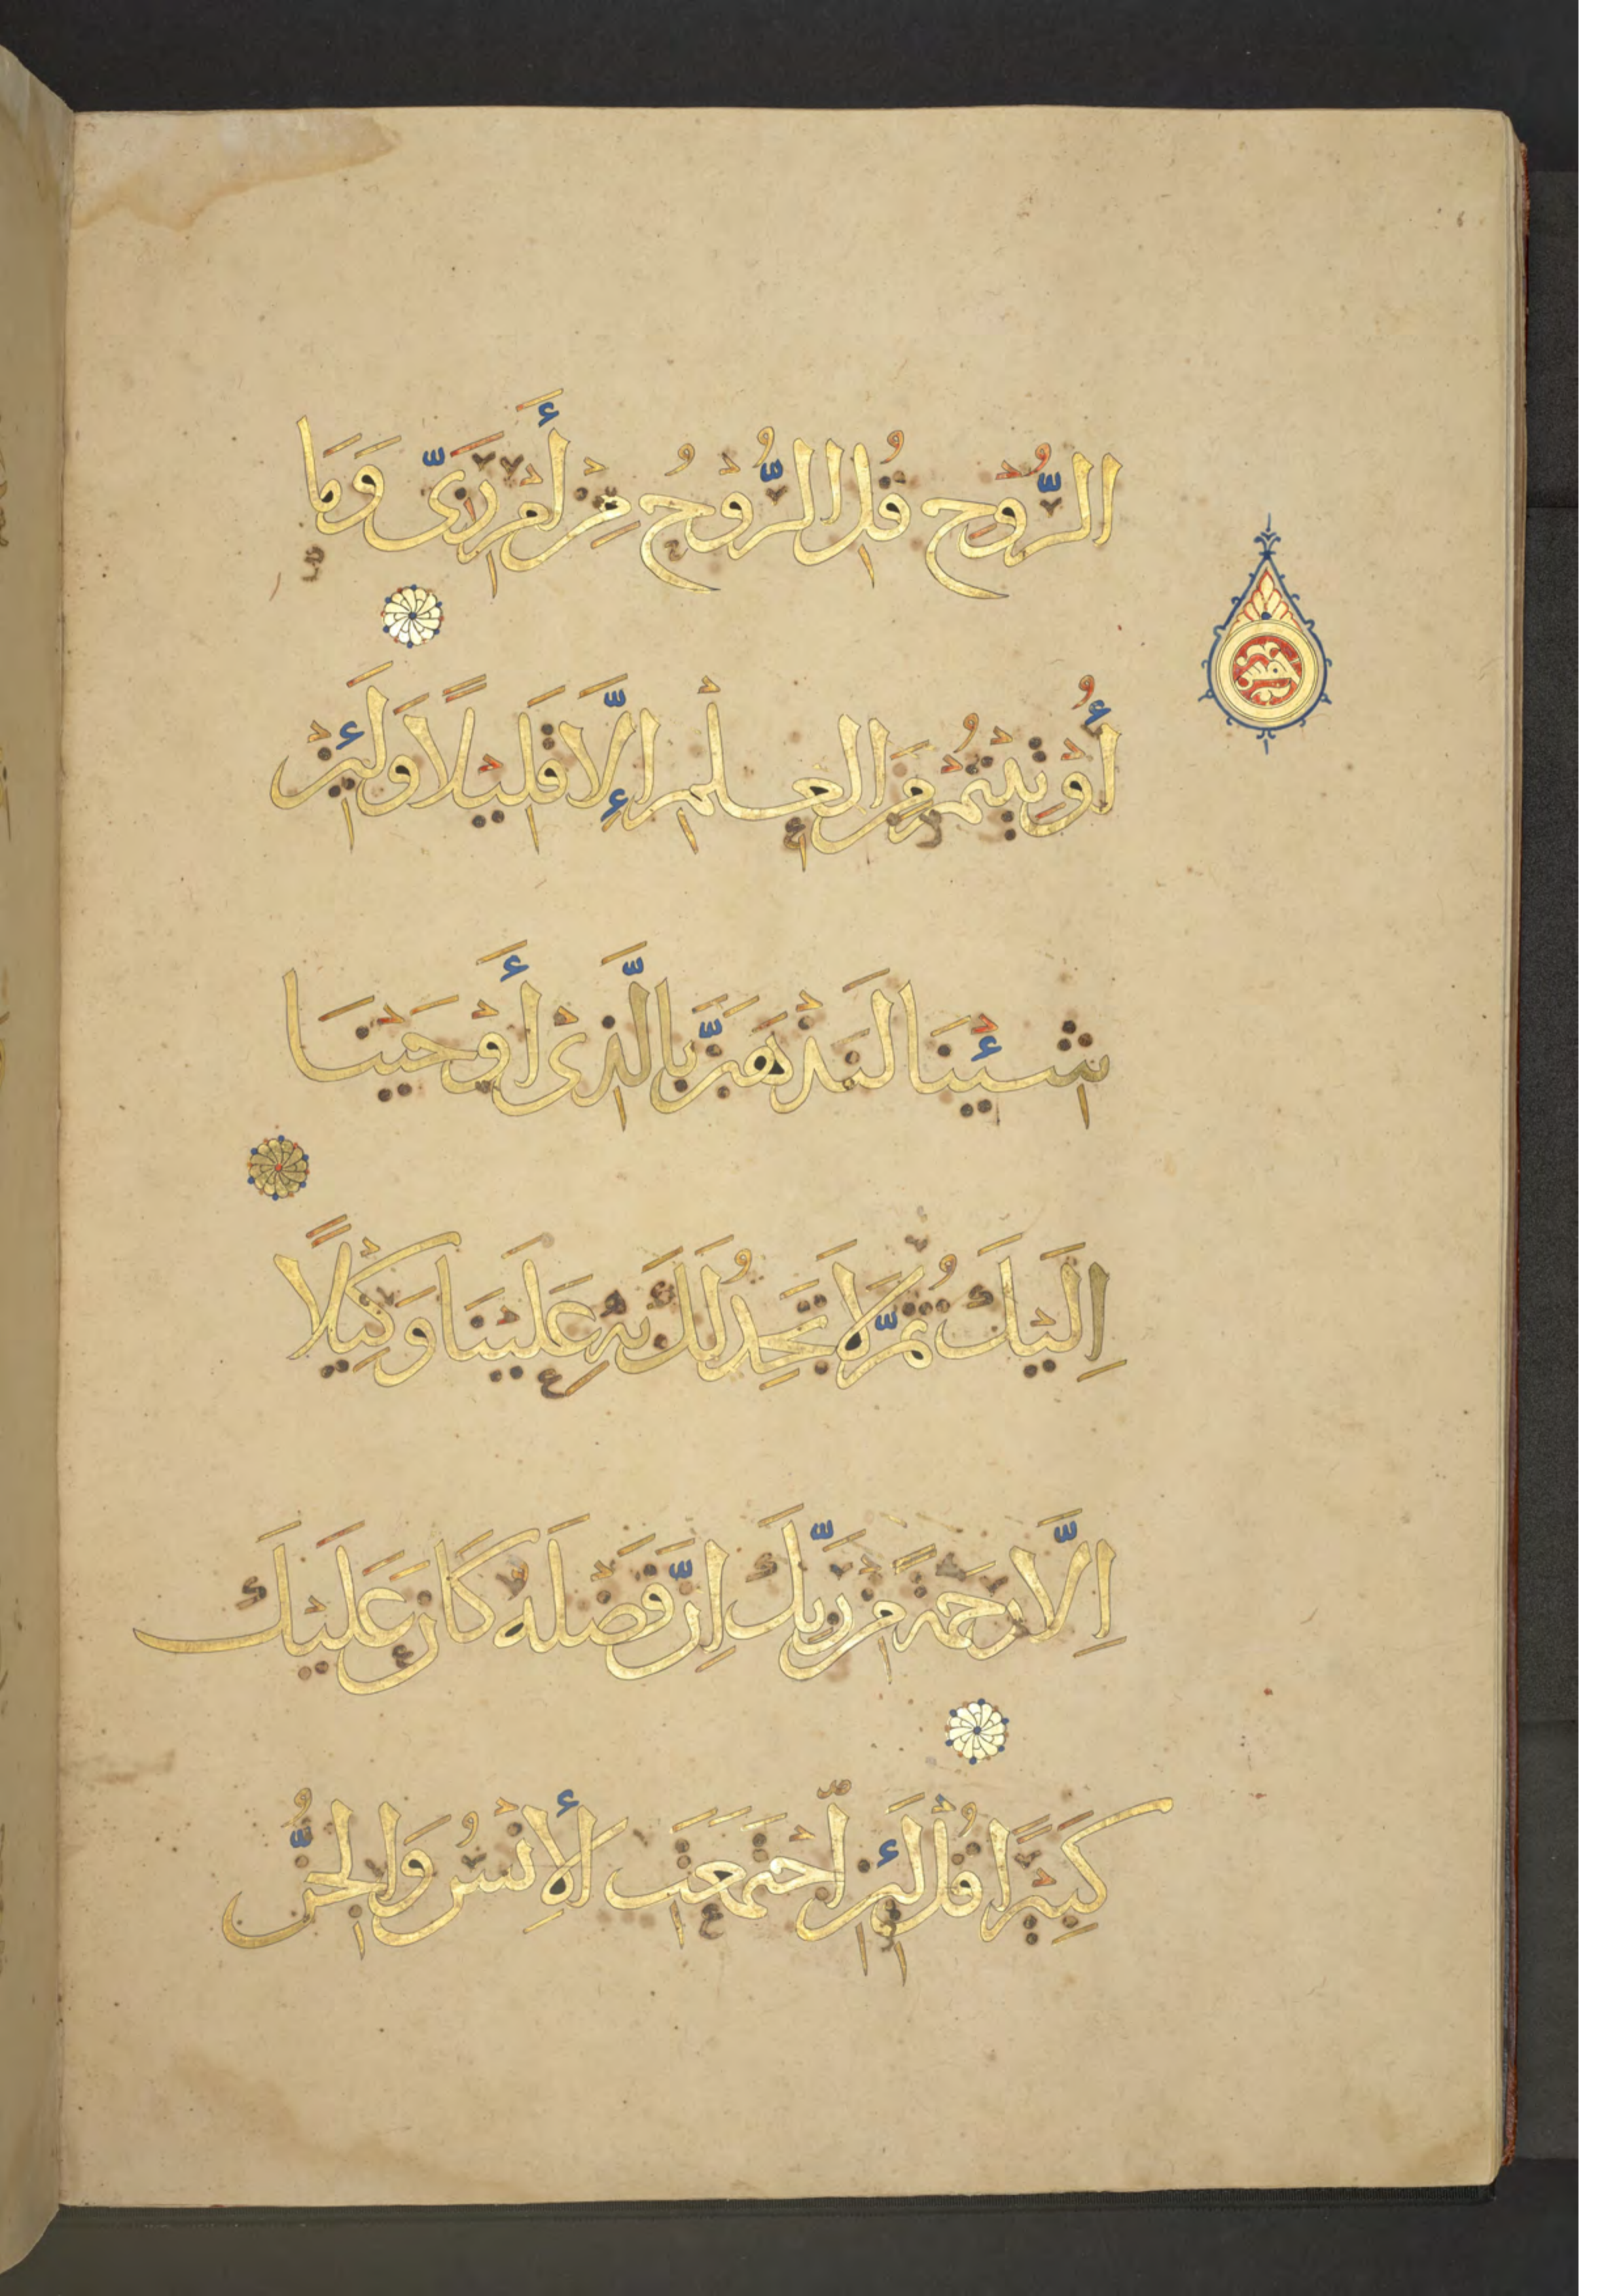 الرُّوْحِ قُلِ الرُّوْحُ مِنْ أَمْرِ رَبِّى وَمَا
أُوْتِيْتُمْ مِنَ الْعِلْمِ إِلَّا قَلِيْلًا وَلَئِنْ
شِئْنَا لَنَذْهَبَنَّ بِالَّذِىْ أَوْحَيْنَا
اِلَيْكَ ثُمَّ لَا تَجِدُ لَكَ بِهِ عَلَيْنَا وَكِيْلًا
اِلَّا رَحْمَةً مِنْ رَبِّكَ اِنَّ فَضْلَهُ كَانَ عَلَيْكَ
كَبِيْرًا قُلْ لَئِنِ اجْتَمَعَتِ الْأِنْسُ وَالْجِنُّ